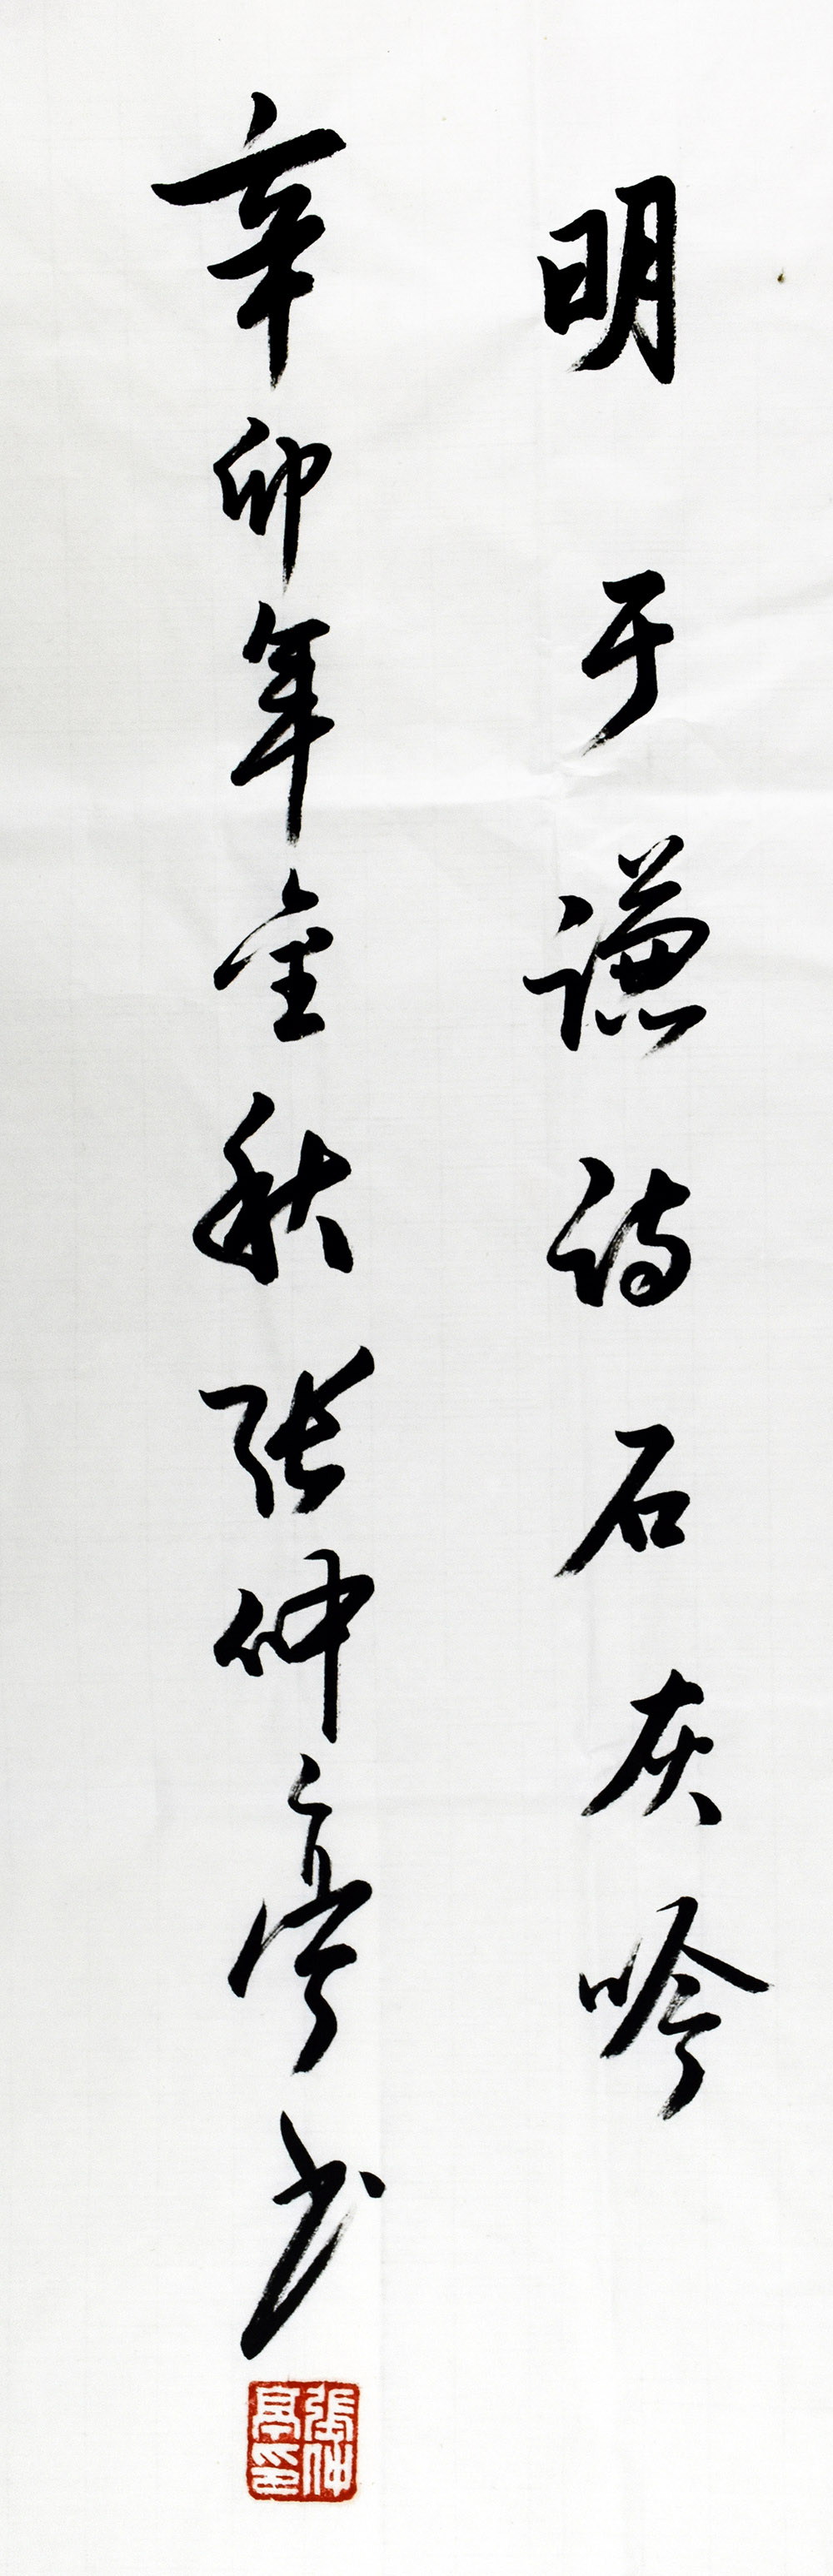 明于谦诗石灰吟
辛卯年金秋张仲亭书
張仲亭印